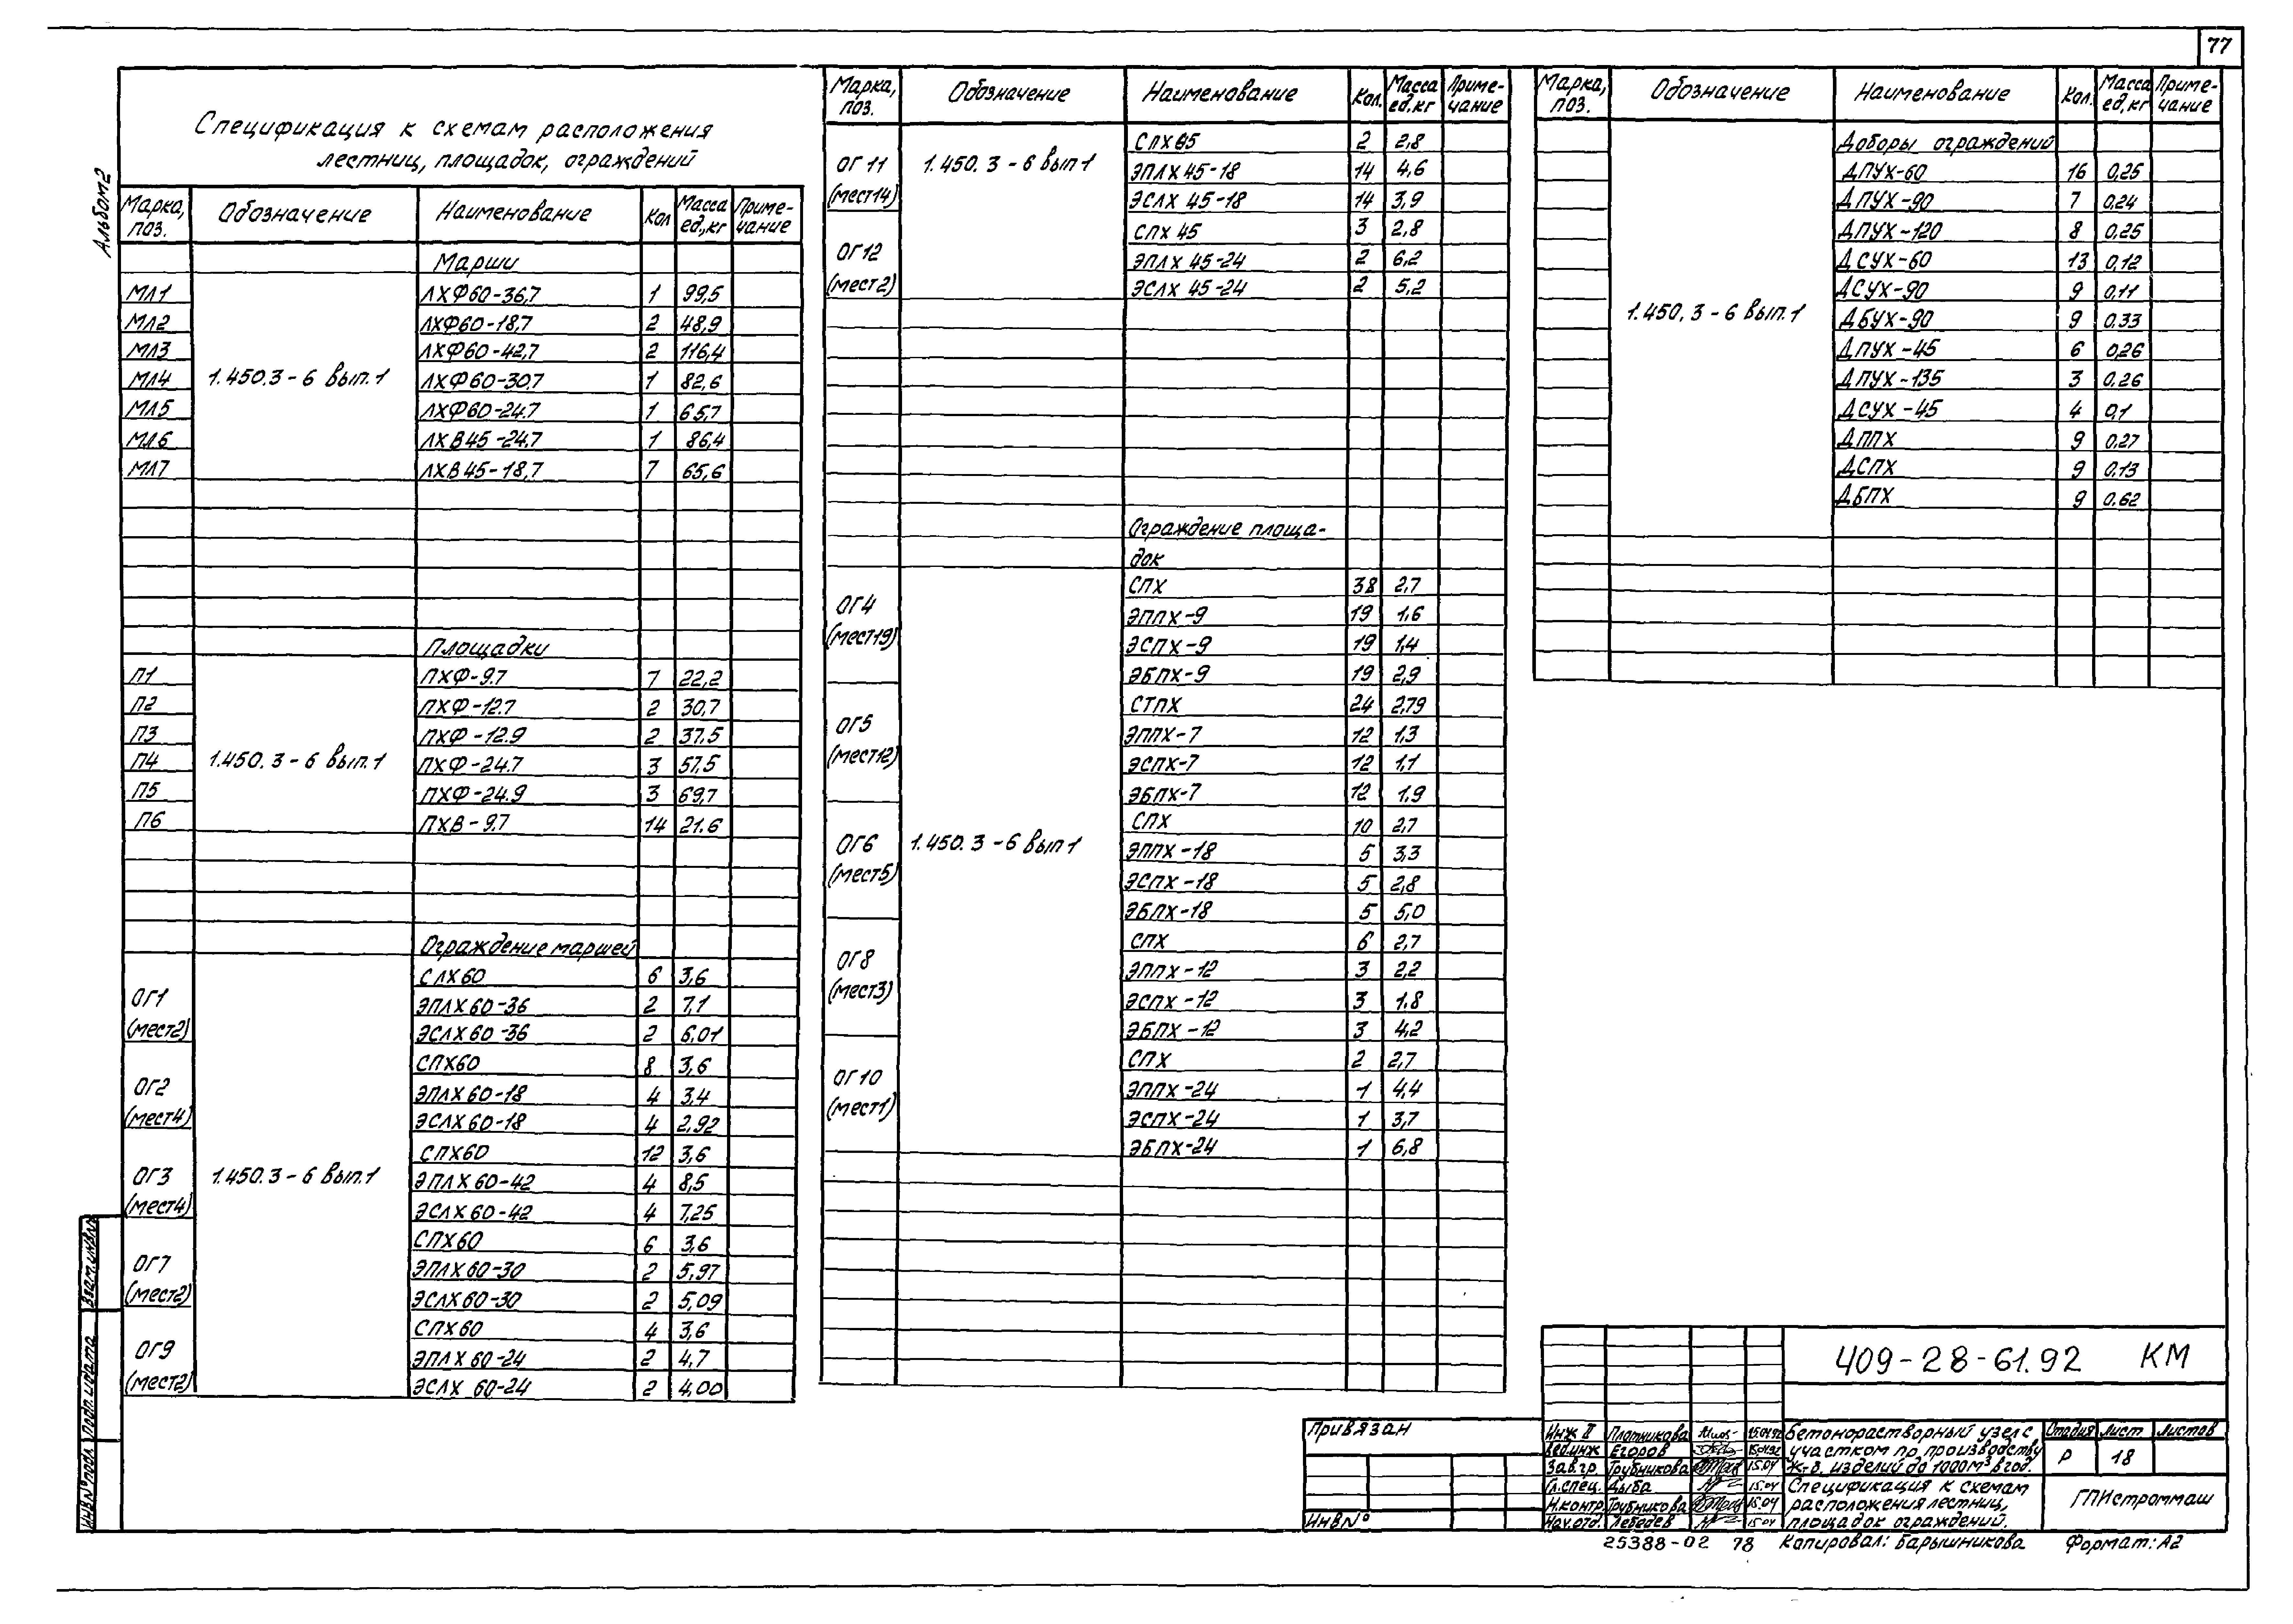 77
Альбом 2
Спецификация к схемам расположения
лестниц, площадок, ограждений
Марка, поз. Обозначение Наименование Кол Масса ед., кг Приме-чание
Марши
МЛ1 ЛХФ60-36,7 1 99,5
МЛ2 ЛХФ60-18,7 2 48,9
МЛ3 ЛХФ60-42,7 2 116,4
МЛ4 1.450.3-6 вып.1 ЛХФ60-30.7 1 82,6
МЛ5 ЛХФ60-24.7 1 65,7
МЛ6 ЛХВ45-24.7 1 86,4
МЛ7 ЛХВ45-18,7 7 65,6
Площадки
П1 ПХФ-9.7 7 22,2
П2 ПХФ-12.7 2 30,7
П3 ПХФ-12.9 2 37.5
П4 1.450.3-6 вып.1 ПХФ-24.7 3 57.5
П5 ПХФ-24.9 3 69,7
П6 ПХВ-9.7 14 21.6
Ограждение маршей
СЛХ60 6 3,6
ОГ1 ЭПЛХ60-36 2 7,1
(мест2) ЭСЛХ60-36 2 6,01
СПХ60 8 3,6
ОГ2 ЭПЛХ60-18 4 3,4
(мест4) ЭСЛХ60-18 4 2,92
СПХ60 12 3,6
ОГ3 1.450.3-6 вып.1 ЭПЛХ60-42 4 8,5
(мест4) ЭСЛХ60-42 4 7,25
СПХ60 6 3,6
ОГ7 ЭПЛХ60-30 2 5,97
(мест2) ЭСЛХ60-30 2 5,09
СПХ60 4 3,6
ОГ9 ЭПЛХ60-24 2 4,7
(мест2) ЭСЛХ 60-24 2 4,00
Марка, поз. Обозначение Наименование Кол. Масса ед.кг Приме-чание
СПХ 2 2,8
ОГ11 1.450.3-6 вып1 ЭПЛХ45-18 14 4,6
(мест14) ЭСЛХ 45-18 14 3,9
СПХ 45 3 2,8
ОГ12 ЭПЛХ 45-24 2 6,2
(мест2) ЭСЛХ 45-24 2 5,2
Ограждение площа-
док
СПХ 38 2,7
ОГ4 ЭППХ-9 19 1,6
(мест19) ЭСПХ-9 19 1,4
ЭБПХ-9 19 2,9
СТПХ 24 2,79
ОГ5 ЭППХ-7 12 1,3
(мест12) ЭСПХ-7 12 1,1
ЭБПХ-7 12 1.9
СПХ 10 2,7
ОГ6 1.450.3-6 вып1 ЭППХ-18 5 3,3
(мест5) ЭСПХ-18 5 2,8
ЭБПХ-18 5 5,0
СПХ 6 2,7
ОГ8 ЭППХ-12 3 2,2
(мест3) ЭСПХ-12 3 1.8
ЭБПХ-12 3 4,2
СПХ 2 2,7
ОГ10 ЭППХ-24 1 4,4
(мест1) ЭСПХ-24 1 3,7
ЭБПХ-24 1 6,8
Марка, поз. Обозначение Наименование Кол. Масса ед,кг Приме-чание
Доборы ограждений
ДПУХ-60 16 0,25
ДПУХ-90 7 0,24
ДПУХ-120 8 0,25
ДСУХ-60 13 0,12
ДСУХ-90 9 0,11
1.450.3-6 вып.1 ДБУХ-90 9 0.33
ДПУХ-45 6 0,26
ДПУХ-135 3 0.26
ДСУХ-45 4 0,1
ДППХ 9 0,27
ДСПХ 9 0.13
ДБПХ 9 0.62
Взам.инв.№
Подп. и дата
Инв № подл
409-28-61.92 КМ
Привязан
Инв №
Инж II Плотникова 15.04.92
Вед.инж Егоров 15.04.92
Зав.гр. Трубникова 15.04
Гл.спец. Дыба 15.04
Н.контр. Трубникова 15.04
Нач.отд. Лебедев 15.04
Бетонорастворный узел с
участком по производству
ж.б. изделий до 1000м³ в год.
Спецификация к схемам
расположения лестниц,
площадок ограждений.
Стадия Лист Листов
Р 18
ГПИстроммаш
25388-02 78 Копировал: Барышникова Формат: А2